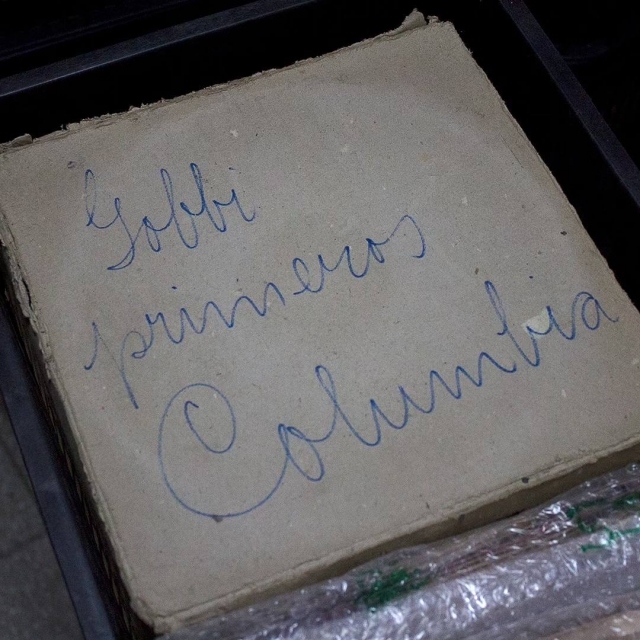 Gobbi
primeros
Columbia